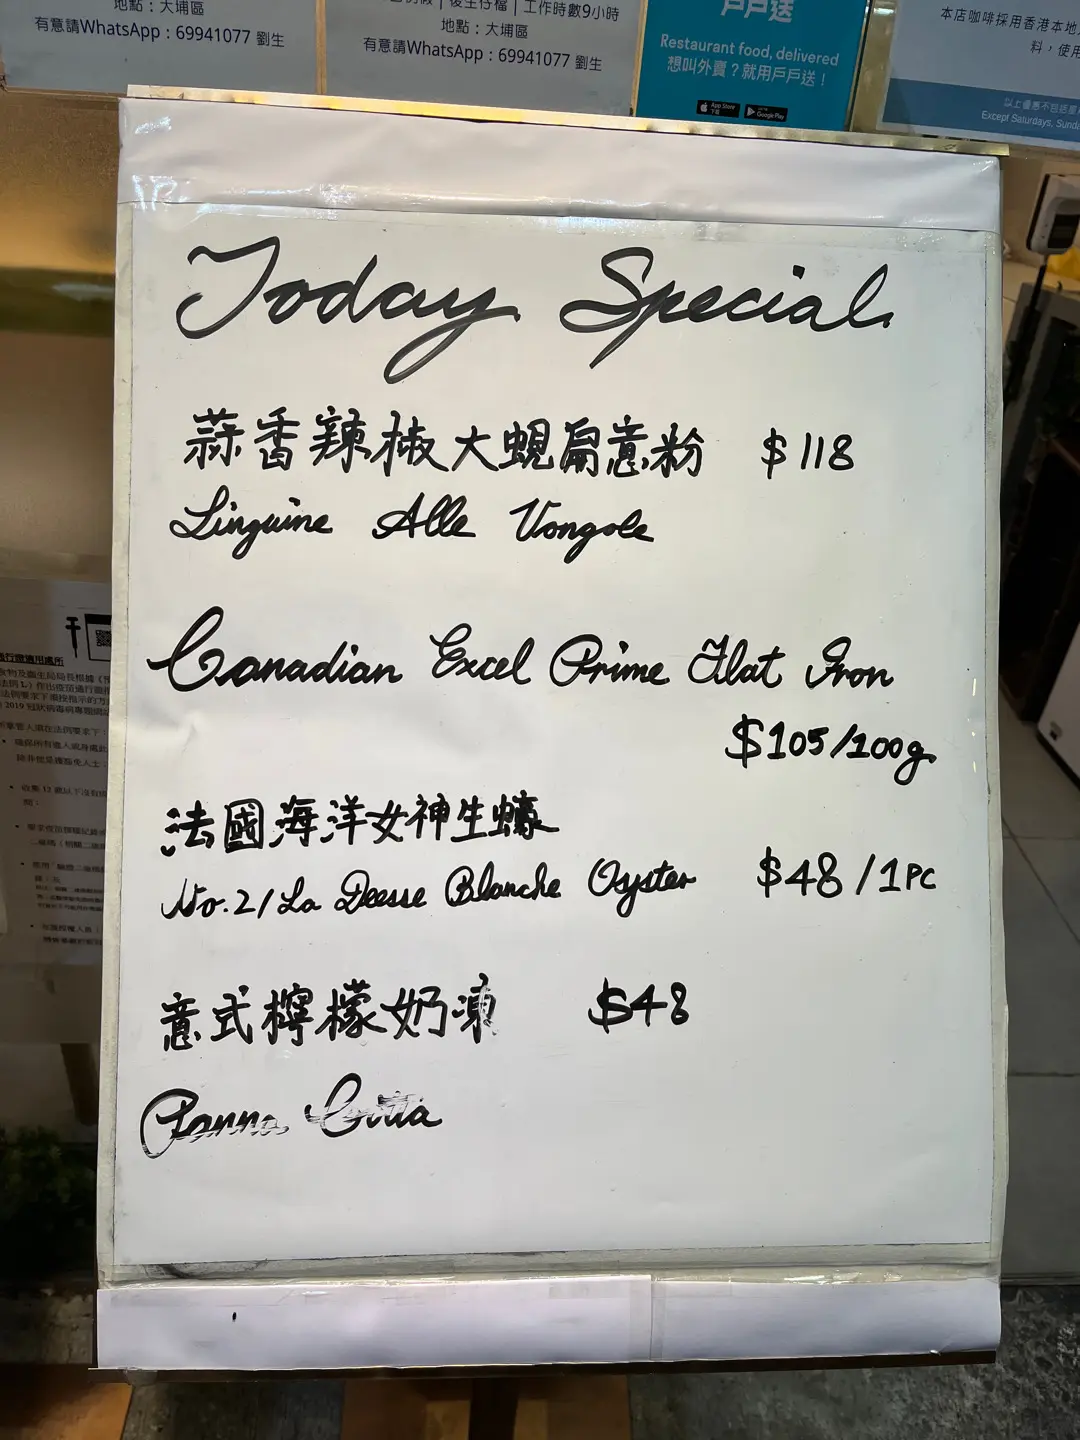 地點：大埔區
有意請WhatsApp：69941077 劉生
後生仔檔 | 工作時數9小時
地點：大埔區
有意請WhatsApp：69941077 劉生
戶戶送
Restaurant food, delivered
想叫外賣？就用戶戶送！
App Store
下載
Google Play
本店咖啡採用香港本地
料，使用
以上優惠不包括星
Except Saturdays, Sunda
Today Special
蒜香辣椒大蜆扁意粉 $118
Linguine Alle Vongole
Canadian Excel Prime Flat Iron
$105/100g
法國海洋女神生蠔
No.2/La Deesse Blanche Oyster $48/1PC
意式檸檬奶凍 $48
Panna Cotta